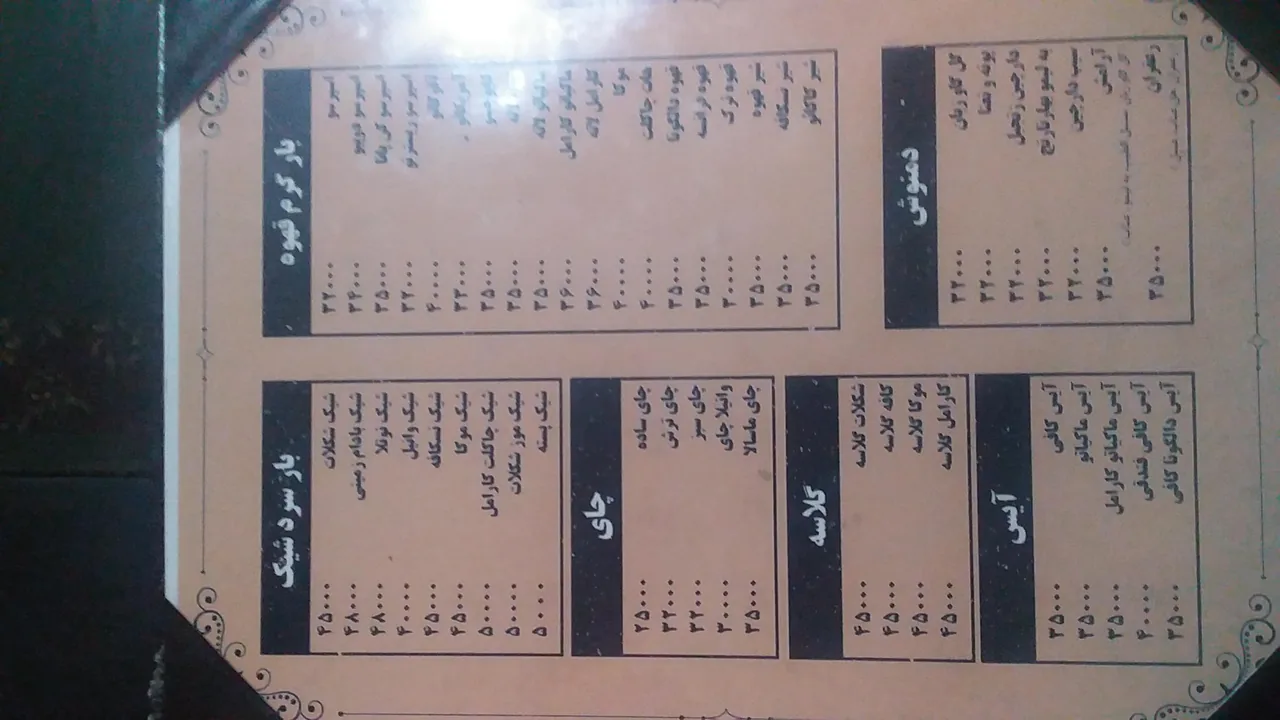 بار گرم قهوه
اسپرسو ۲۲۰۰۰
اسپرسو دوپیو ۲۴۰۰۰
اسپرسو کن پانا ۲۵۰۰۰
اسپرسو ریسترتو ۲۲۰۰۰
۴۰۰۰۰
۲۳۰۰۰
۳۵۰۰۰
۳۵۰۰۰
۳۵۰۰۰
ماکیاتو کارامل ۳۶۰۰۰
کارامل لاته ۳۶۰۰۰
موکا ۴۰۰۰۰
هات چاکلت ۴۰۰۰۰
قهوه دالگونا ۳۵۰۰۰
قهوه فرانسه ۳۵۰۰۰
قهوه ترک ۳۰۰۰۰
شیر قهوه ۳۵۰۰۰
شیر نسکافه ۳۵۰۰۰
شیر کاکائو ۳۵۰۰۰
دمنوش
گل گاو زبان ۳۲۰۰۰
پونه و نعنا ۳۲۰۰۰
دارچین زنجبیل ۳۲۰۰۰
به لیمو بهار نارنج ۳۲۰۰۰
سیب دارچین ۳۲۰۰۰
آرامش ۳۵۰۰۰
زعفران ۳۵۰۰۰
بار سرد شیک
شیک شکلات ۴۵۰۰۰
شیک بادام زمینی ۴۸۰۰۰
شیک نوتلا ۴۸۰۰۰
شیک وانیل ۴۰۰۰۰
شیک نسکافه ۴۵۰۰۰
شیک موکا ۴۵۰۰۰
شیک چاکلت کارامل ۵۰۰۰۰
شیک موز شکلات ۵۰۰۰۰
شیک پسته ۵۰۰۰۰
چای
چای ساده ۲۵۰۰۰
چای ترش ۳۲۰۰۰
چای سبز ۳۲۰۰۰
وانیلا چای ۳۰۰۰۰
چای ماسالا ۳۵۰۰۰
گلاسه
شکلات گلاسه ۴۵۰۰۰
کافه گلاسه ۴۵۰۰۰
موکا گلاسه ۴۵۰۰۰
کارامل گلاسه ۴۵۰۰۰
آیس
آیس کافی ۳۵۰۰۰
آیس ماکیاتو ۳۵۰۰۰
آیس ماکیاتو کارامل ۳۵۰۰۰
آیس کافی فندقی ۴۰۰۰۰
آیس دالگونا کافی ۳۵۰۰۰